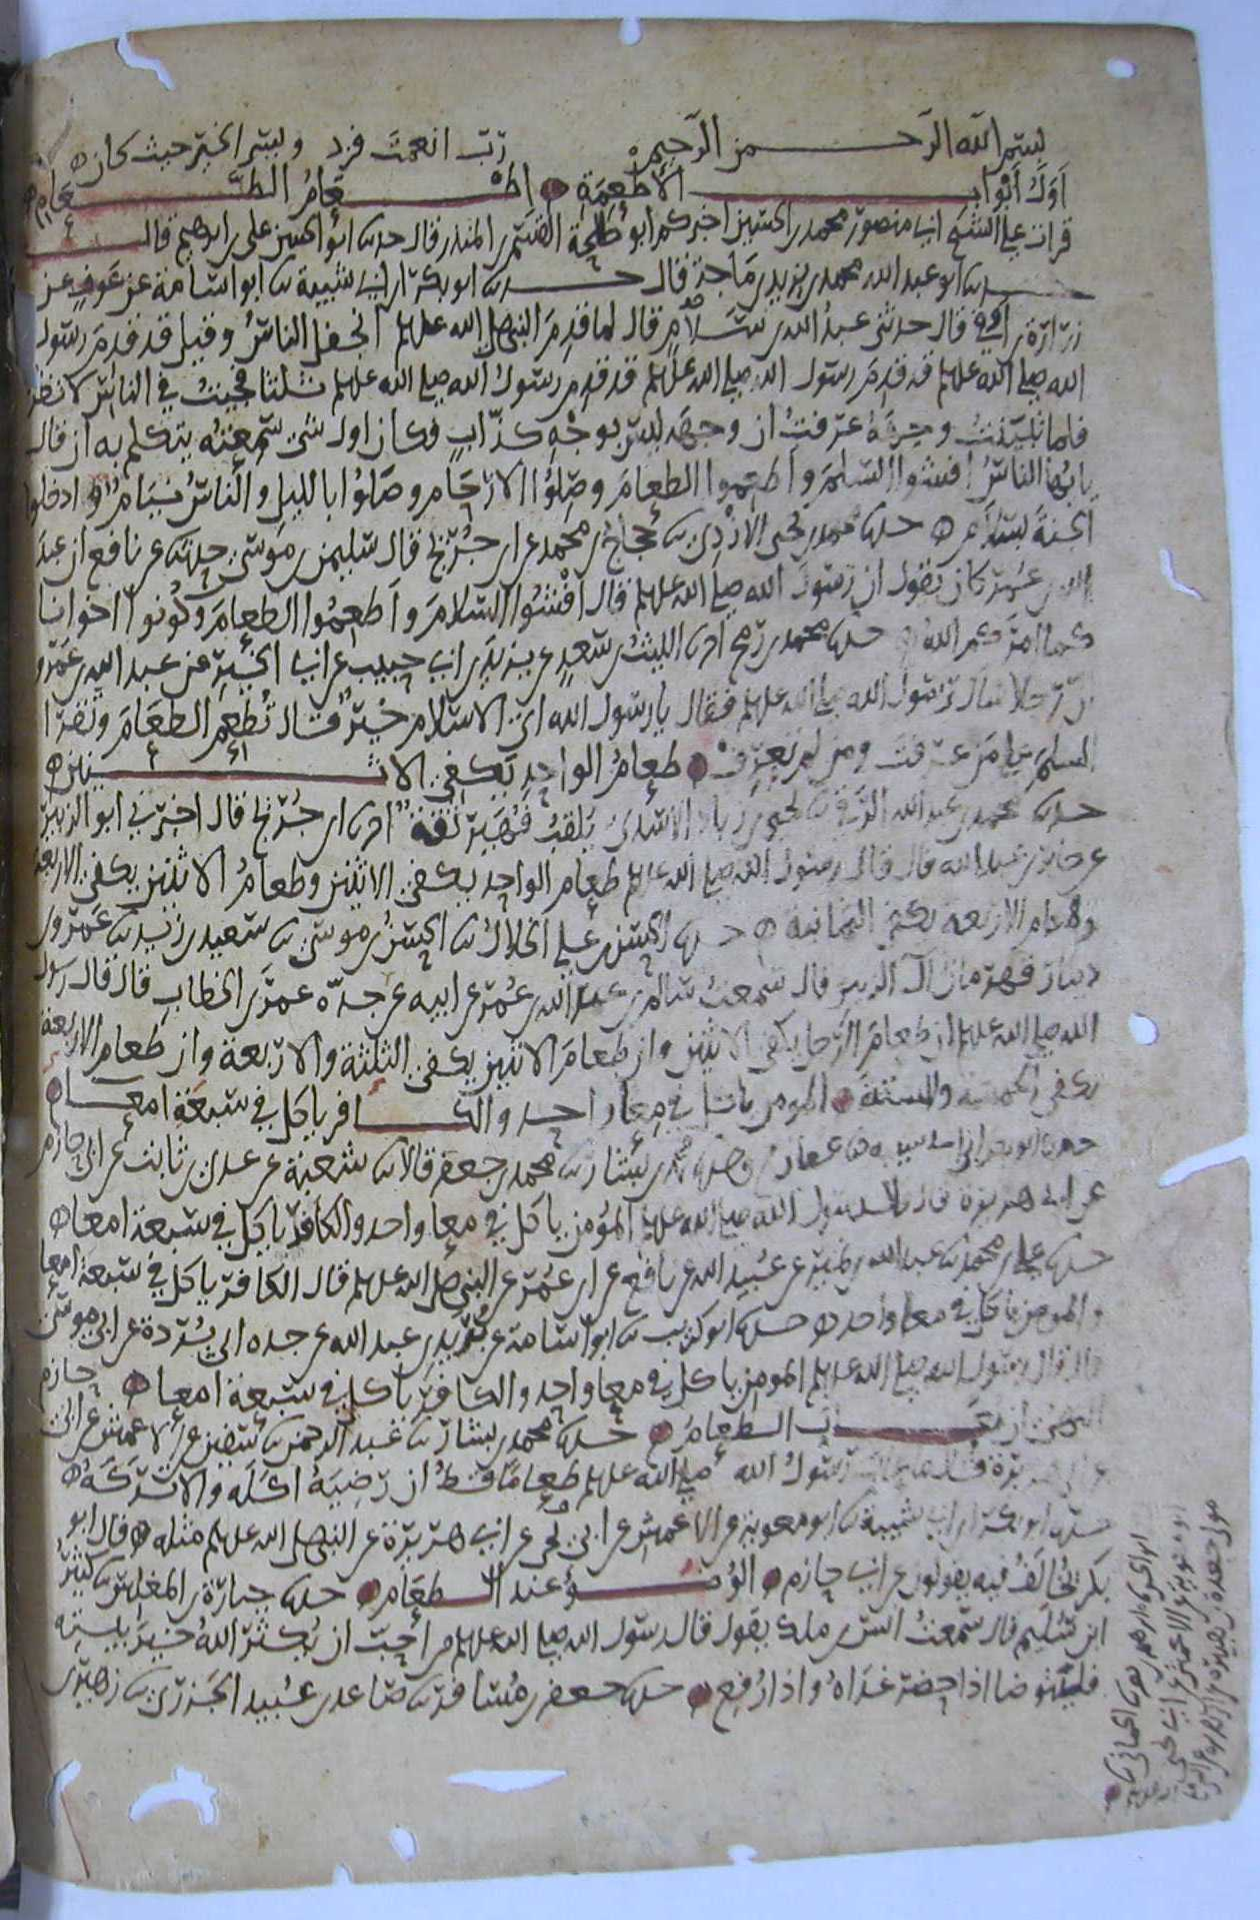 بسم الله الرحمن الرحيم رب انعمت فزد ويسر الخير حيث كان
اول ابواب الاطعمة اطعام الطعام
قرات على الشيخ ابي منصور محمد بن الحسين اخبركم ابو طلحة القسم بن المنذر قال حدثنا ابو الحسين على بن ابرهيم قال
حدثنا ابو عبد الله محمد بن يزيد بن ماجة قال حدثنا ابو بكر بن ابي شيبة نا ابو اسامة عن عوف عن
زرارة بن اوفى قال حدثنى عبد الله بن سلام قال لما قدم النبي صلى الله عليه وسلم انجفل الناس وقيل قد قدم رسول
الله صلى الله عليه وسلم قد قدم رسول الله صلى الله عليه وسلم قد قدم رسول الله صلى الله عليه وسلم ثلثا فجيت في الناس لانظر
فلما تبينت وجهه عرفت ان وجهه ليس بوجه كذاب فكان اول شى سمعته يتكلم به ان قال
يايها الناس افشوا السلم واطعموا الطعام وصلوا الارحام وصلوا بالليل والناس نيام ادخلوا
الجنة بسلام حدثنا محمد بن يحيى الازدى نا حجاج بن محمد عن ابن جريج قال سليمن بن موسى حدثنا عن نافع ان عبد
الله بن عمر كان يقول ان رسول الله صلى الله عليه وسلم قال افشوا السلام واطعموا الطعام وكونوا اخوانا
كما امركم الله حدثنا محمد بن رمح انا الليث بن سعد عن يزيد بن ابي حبيب عن ابي الخير عن عبد الله بن عمرو
ان رجلا سال رسول الله صلى الله عليه وسلم فقال يا رسول الله اى الاسلام خير قال تطعم الطعام وتقرا
السلم على من عرفت ومن لم تعرف طعام الواحد يكفي الاثنين
حدثنا محمد بن عبد الله الرقي نا يحيى بن زياد الاسدى يلقب فهير ثقة انا ابن جريج قال اخبرني ابو الزبير
عن جابر بن عبد الله قال قال رسول الله صلى الله عليه وسلم طعام الواحد يكفي الاثنين وطعام الاثنين يكفي الاربعة
وطعام الاربعة يكفي الثمانية حدثنا الحسن بن علي الخلال نا الحسن بن موسى نا سعيد بن زيد نا عمرو بن
دينار قهرمان آل الزبير قال سمعت سالم بن عبد الله بن عمر عن ابيه عن جده عمر بن الخطاب قال قال رسول
الله صلى الله عليه وسلم ان طعام الرجل يكفي الاثنين وان طعام الاثنين يكفي الثلثة والاربعة وان طعام الاربعة
يكفي الخمسة والستة المومن ياكل في معا واحد والكافر ياكل في سبعة امعا
حدثنا ابو بكر بن ابي شيبة نا عفان وحدثنا محمد بن بشار نا محمد بن جعفر قالا نا شعبة عن عدى بن ثابت عن ابي حازم
عن ابي هريرة قال قال رسول الله صلى الله عليه وسلم المؤمن ياكل في معا واحد والكافر ياكل في سبعة امعا
حدثنا علي بن محمد نا عبد الله بن نمير عن عبيد الله عن نافع عن ابن عمر عن النبي صلى الله عليه وسلم قال الكافر ياكل في سبعة امعا
والمومن ياكل في معا واحد حدثنا ابو كريب نا ابو اسامة عن بريد بن عبد الله عن جده ابي بردة عن ابي موسى
قال قال رسول الله صلى الله عليه وسلم المومن ياكل في معا واحد والكافر ياكل في سبعة امعا
النهي ان يعاب الطعام حدثنا محمد بن بشار نا عبد الرحمن نا سفين عن الاعمش عن ابي حازم
عن ابي هريرة قال ما عاب رسول الله صلى الله عليه وسلم طعاما قط ان رضيه اكله والا تركه
حدثنا ابو بكر بن ابي شيبة نا ابو معوية عن الاعمش عن ابي يحيى عن ابي هريرة عن النبي صلى الله عليه وسلم مثله قال ابو
بكر نخالف فيه يقولون عن ابي حازم الوضوء عند الطعام حدثنا جبارة بن المغلس نا كثير
ابن سليم قال سمعت انس بن ملك يقول قال رسول الله صلى الله عليه وسلم من احب ان يكثر الله خير بيته
فليتوضا اذا حضر غداه واذا رفع حدثنا جعفر بن مسافر نا صاعد بن عبيد الجزرى نا زهير بن
ابو معوية عن الاعمش عن ابي يحيى
مولى جعدة بن هبيرة